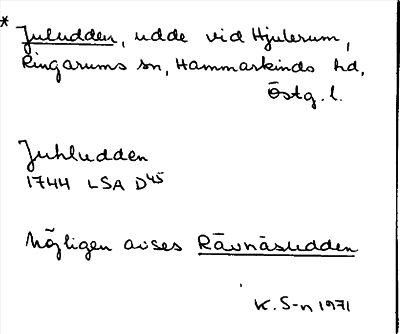 * Juludden, udde vid Hjulerum,
Ringarums sn, Hammarkinds hd,
Östg. l.
Juhludden
1744 LSA D45
Möjligen avses Rävnäsudden
K. S-n 1971